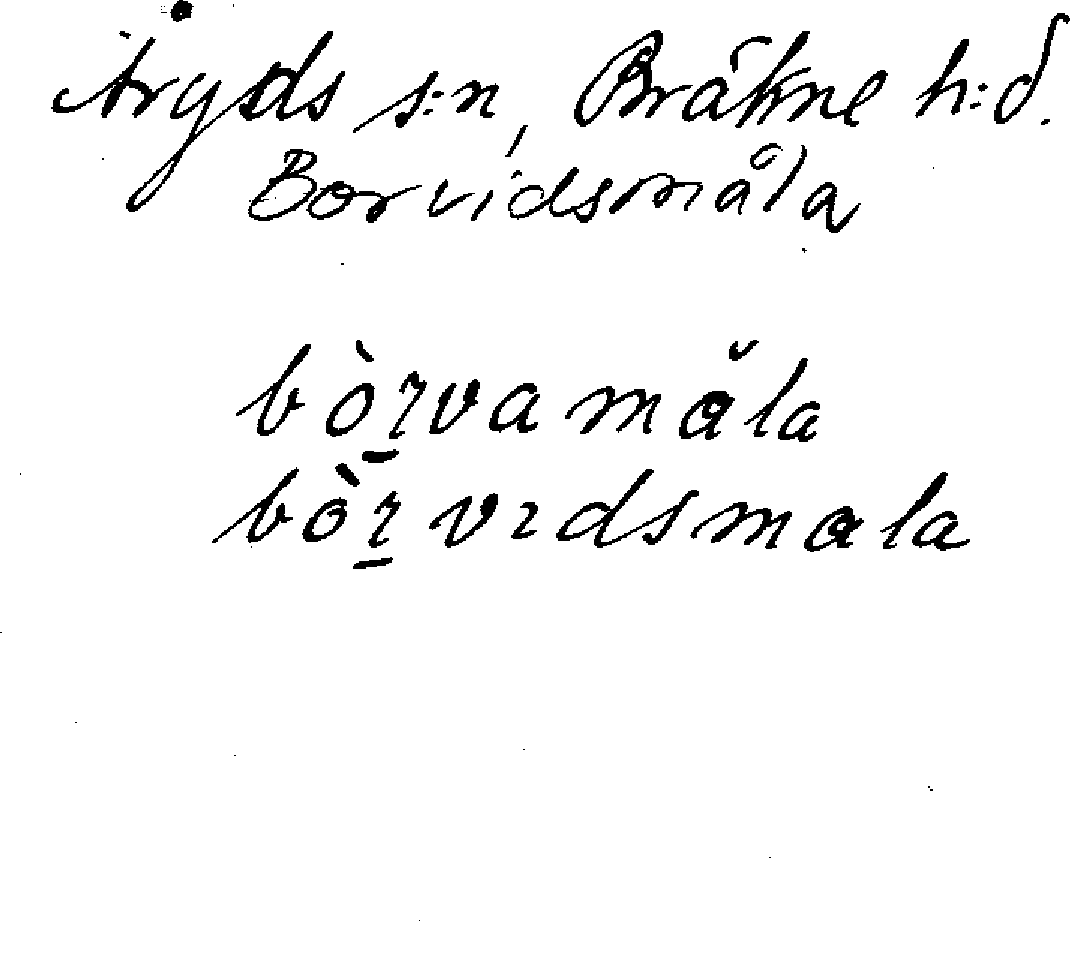 Åryds s:n, Bräkne h:d.
Borvidsmåla
bòrvamåla
bòrvidsmåla